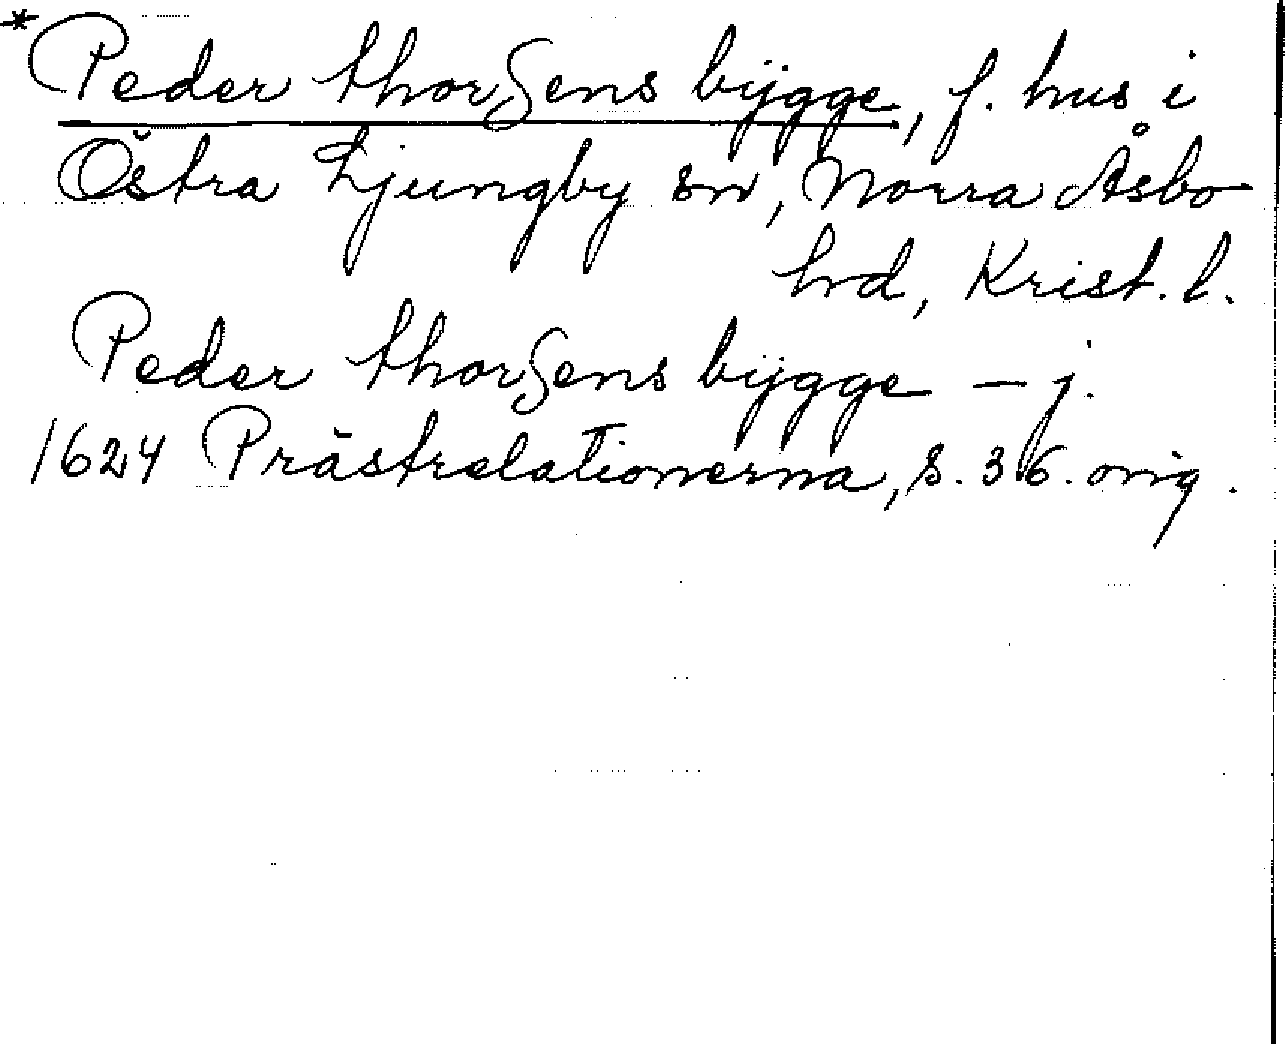 *Peder thorSens bÿgge, f. hus i
Östra Ljungby sn, Norra Åsbo
hd, Krist. l.
Peder thorSens bÿgge – j.
1624 Prästrelationerna, s. 36. orig.